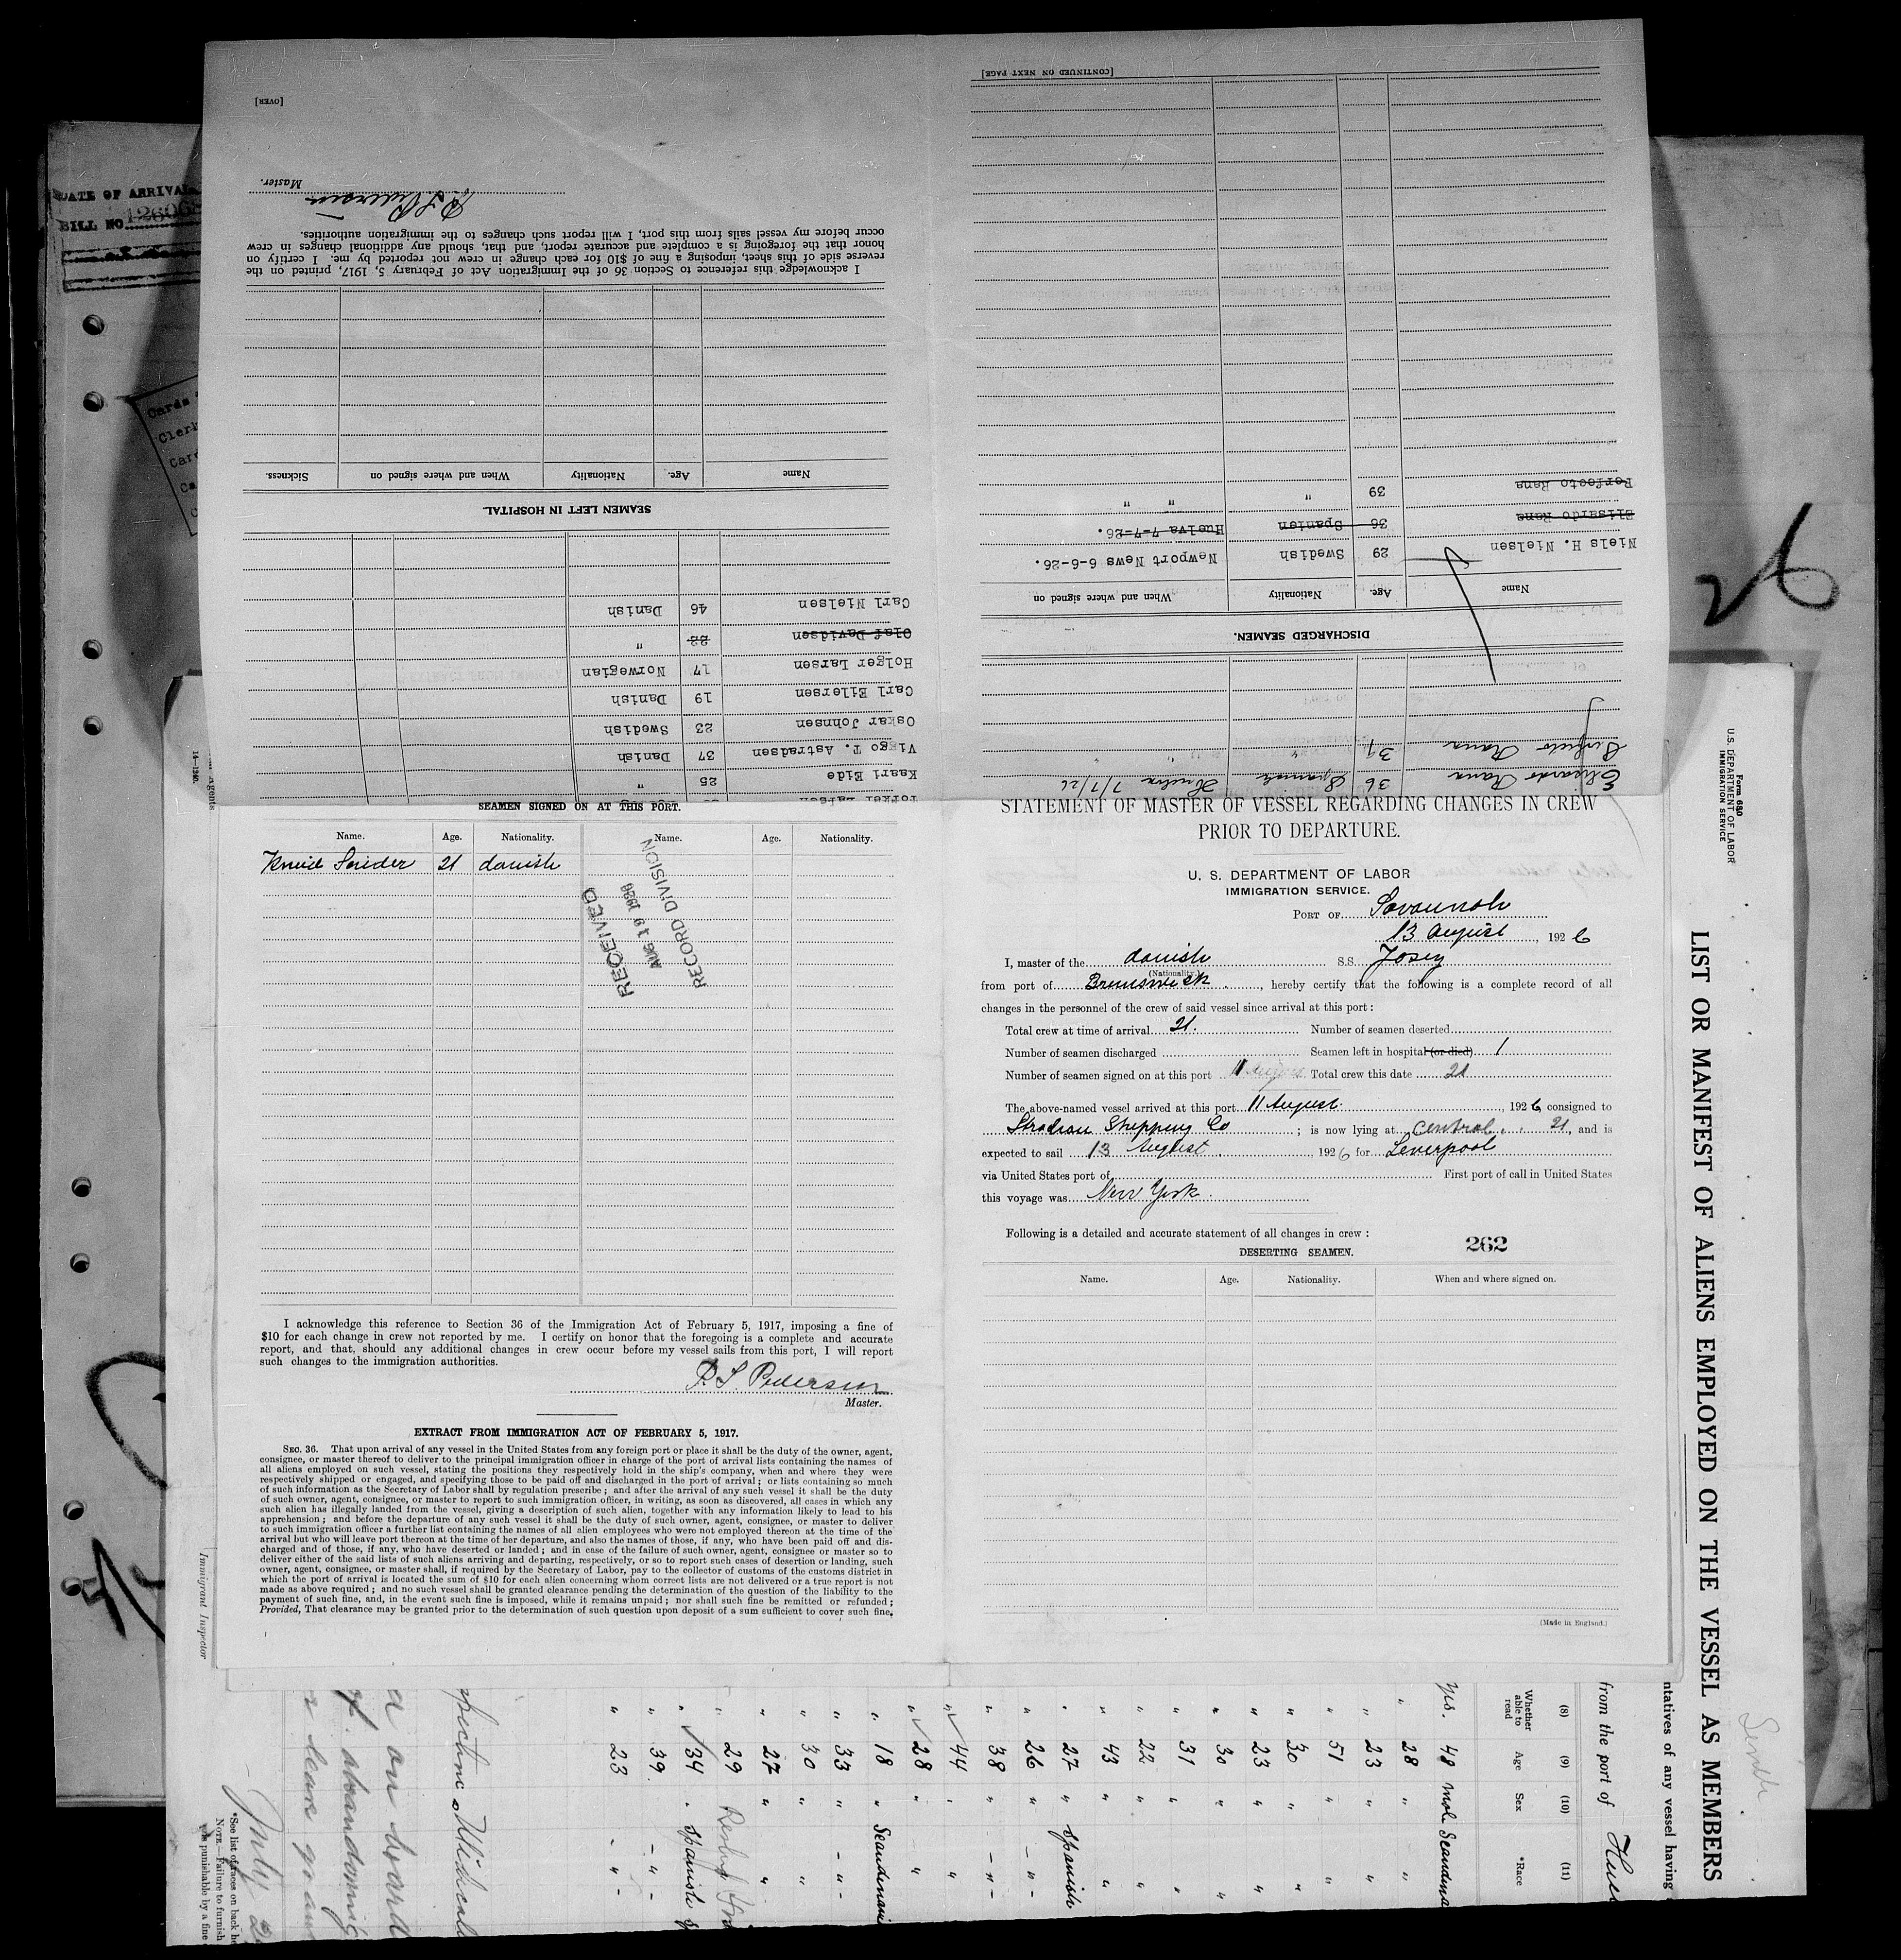 [CONTINUED ON NEXT PAGE]
Perfecto Rana 39 " " "
Elisardo Rana 36 Spanien Huelva 7-7-26.
Niels H. Nielsen 29 Swedish Newport News 6-6-26.
Name Age. Nationality When and where signed on
DISCHARGED SEAMEN.
Perfecto Rana 39 " "
Elisardo Rana 36 Spanish Huelva 7/7/26
[OVER]
Master.
P. S. Pedersen
I acknowledge this reference to Section 36 of the Immigration Act of February 5, 1917, printed on the
reverse side of this sheet, imposing a fine of $10 for each change in crew not reported by me. I certify on
honor that the foregoing is a complete and accurate report, and that, should any additional changes in crew
occur before my vessel sails from this port, I will report such changes to the immigration authorities.
Name Age. Nationality When and where signed on Sickness.
SEAMEN LEFT IN HOSPITAL.
Carl Nielsen 46 Danish
Olaf Davidsen 22 "
Holger Larsen 17 Norwegian
Carl Eilersen 19 Danish
Oskar Johnsen 23 Swedish
Viggo T. Astradsen 37 Danish
Kaari Eide 25 "
DATE OF ARRIVAL
BILL NO. 126068
Cards
26
SEAMEN SIGNED ON AT THIS PORT.
Name. Age. Nationality. Name. Age. Nationality.
Knud Snider 21 danish
RECEIVED
AUG 19 1926
RECORD DIVISION
I acknowledge this reference to Section 36 of the Immigration Act of February 5, 1917, imposing a fine of
$10 for each change in crew not reported by me. I certify on honor that the foregoing is a complete and accurate
report, and that, should any additional changes in crew occur before my vessel sails from this port, I will report
such changes to the immigration authorities.
P. S. Pedersen
Master.
EXTRACT FROM IMMIGRATION ACT OF FEBRUARY 5, 1917.
SEC. 36. That upon arrival of any vessel in the United States from any foreign port or place it shall be the duty of the owner, agent,
consignee, or master thereof to deliver to the principal immigration officer in charge of the port of arrival lists containing the names of
all aliens employed on such vessel, stating the positions they respectively hold in the ship's company, when and where they were
respectively shipped or engaged, and specifying those to be paid off and discharged in the port of arrival; or lists containing so much
of such information as the Secretary of Labor shall by regulation prescribe; and after the arrival of any such vessel it shall be the duty
of such owner, agent, consignee, or master to report to such immigration officer, in writing, as soon as discovered, all cases in which any
such alien has illegally landed from the vessel, giving a description of such alien, together with any information likely to lead to his
apprehension; and before the departure of any such vessel it shall be the duty of such owner, agent, consignee, or master to deliver
to such immigration officer a further list containing the names of all alien employees who were not employed thereon at the time of the
arrival but who will leave port thereon at the time of her departure, and also the names of those, if any, who have been paid off and dis-
charged and of those, if any, who have deserted or landed; and in case of the failure of such owner, agent, consignee or master so to
deliver either of the said lists of such aliens arriving and departing, respectively, or so to report such cases of desertion or landing, such
owner, agent, consignee, or master shall, if required by the Secretary of Labor, pay to the collector of customs of the customs district in
which the port of arrival is located the sum of $10 for each alien concerning whom correct lists are not delivered or a true report is not
made as above required; and no such vessel shall be granted clearance pending the determination of the question of the liability to the
payment of such fine, and, in the event such fine is imposed, while it remains unpaid; nor shall such fine be remitted or refunded;
Provided, That clearance may be granted prior to the determination of such question upon deposit of a sum sufficient to cover such fine.
STATEMENT OF MASTER OF VESSEL REGARDING CHANGES IN CREW
PRIOR TO DEPARTURE.
U. S. DEPARTMENT OF LABOR
IMMIGRATION SERVICE.
PORT OF Savannah
13 August, 1926
I, master of the danish S.S. Josey
(Nationality)
from port of Brunswick, hereby certify that the following is a complete record of all
changes in the personnel of the crew of said vessel since arrival at this port:
Total crew at time of arrival 21. Number of seamen deserted
Number of seamen discharged Seamen left in hospital (or died) 1
Number of seamen signed on at this port 1 Total crew this date 21
The above-named vessel arrived at this port 11 August, 1926 consigned to
Strachan Shipping Co; is now lying at Central 21, and is
expected to sail 13 August, 1926 for Leverpool
via United States port of First port of call in United States
this voyage was New York.
Following is a detailed and accurate statement of all changes in crew:
262
DESERTING SEAMEN.
Name. Age. Nationality. When and where signed on.
(Made in England.)
Form 680
U.S. DEPARTMENT OF LABOR
IMMIGRATION SERVICE
LIST OR MANIFEST OF ALIENS EMPLOYED ON THE VESSEL AS MEMBERS
ntatives of any vessel having
from the port of
(8) (9) (10) (11)
Whether able to read Age Sex *Race
yes. 48 male Scandina
" 28 " "
" 23 " "
" 51 " "
" 30 " "
" 23 " "
" 30 " "
" 31 " "
" 22 " "
" 43 " "
" 27 " Spanish
" 26 " - " -
" 38 " - " -
" 44 " "
" 28 " "
" 18 " Scandinavi
" 33 " - " -
" 30 " "
" 27 " "
" 29
" 34 " Spanish
" 39 - " -
" 23 - " -
Immigrant Inspector
14—1240
*See list of races on back he
NOTE.—Failure to furnish
is punishable by a fine
a on board
of abandoning
leave go an
July 2